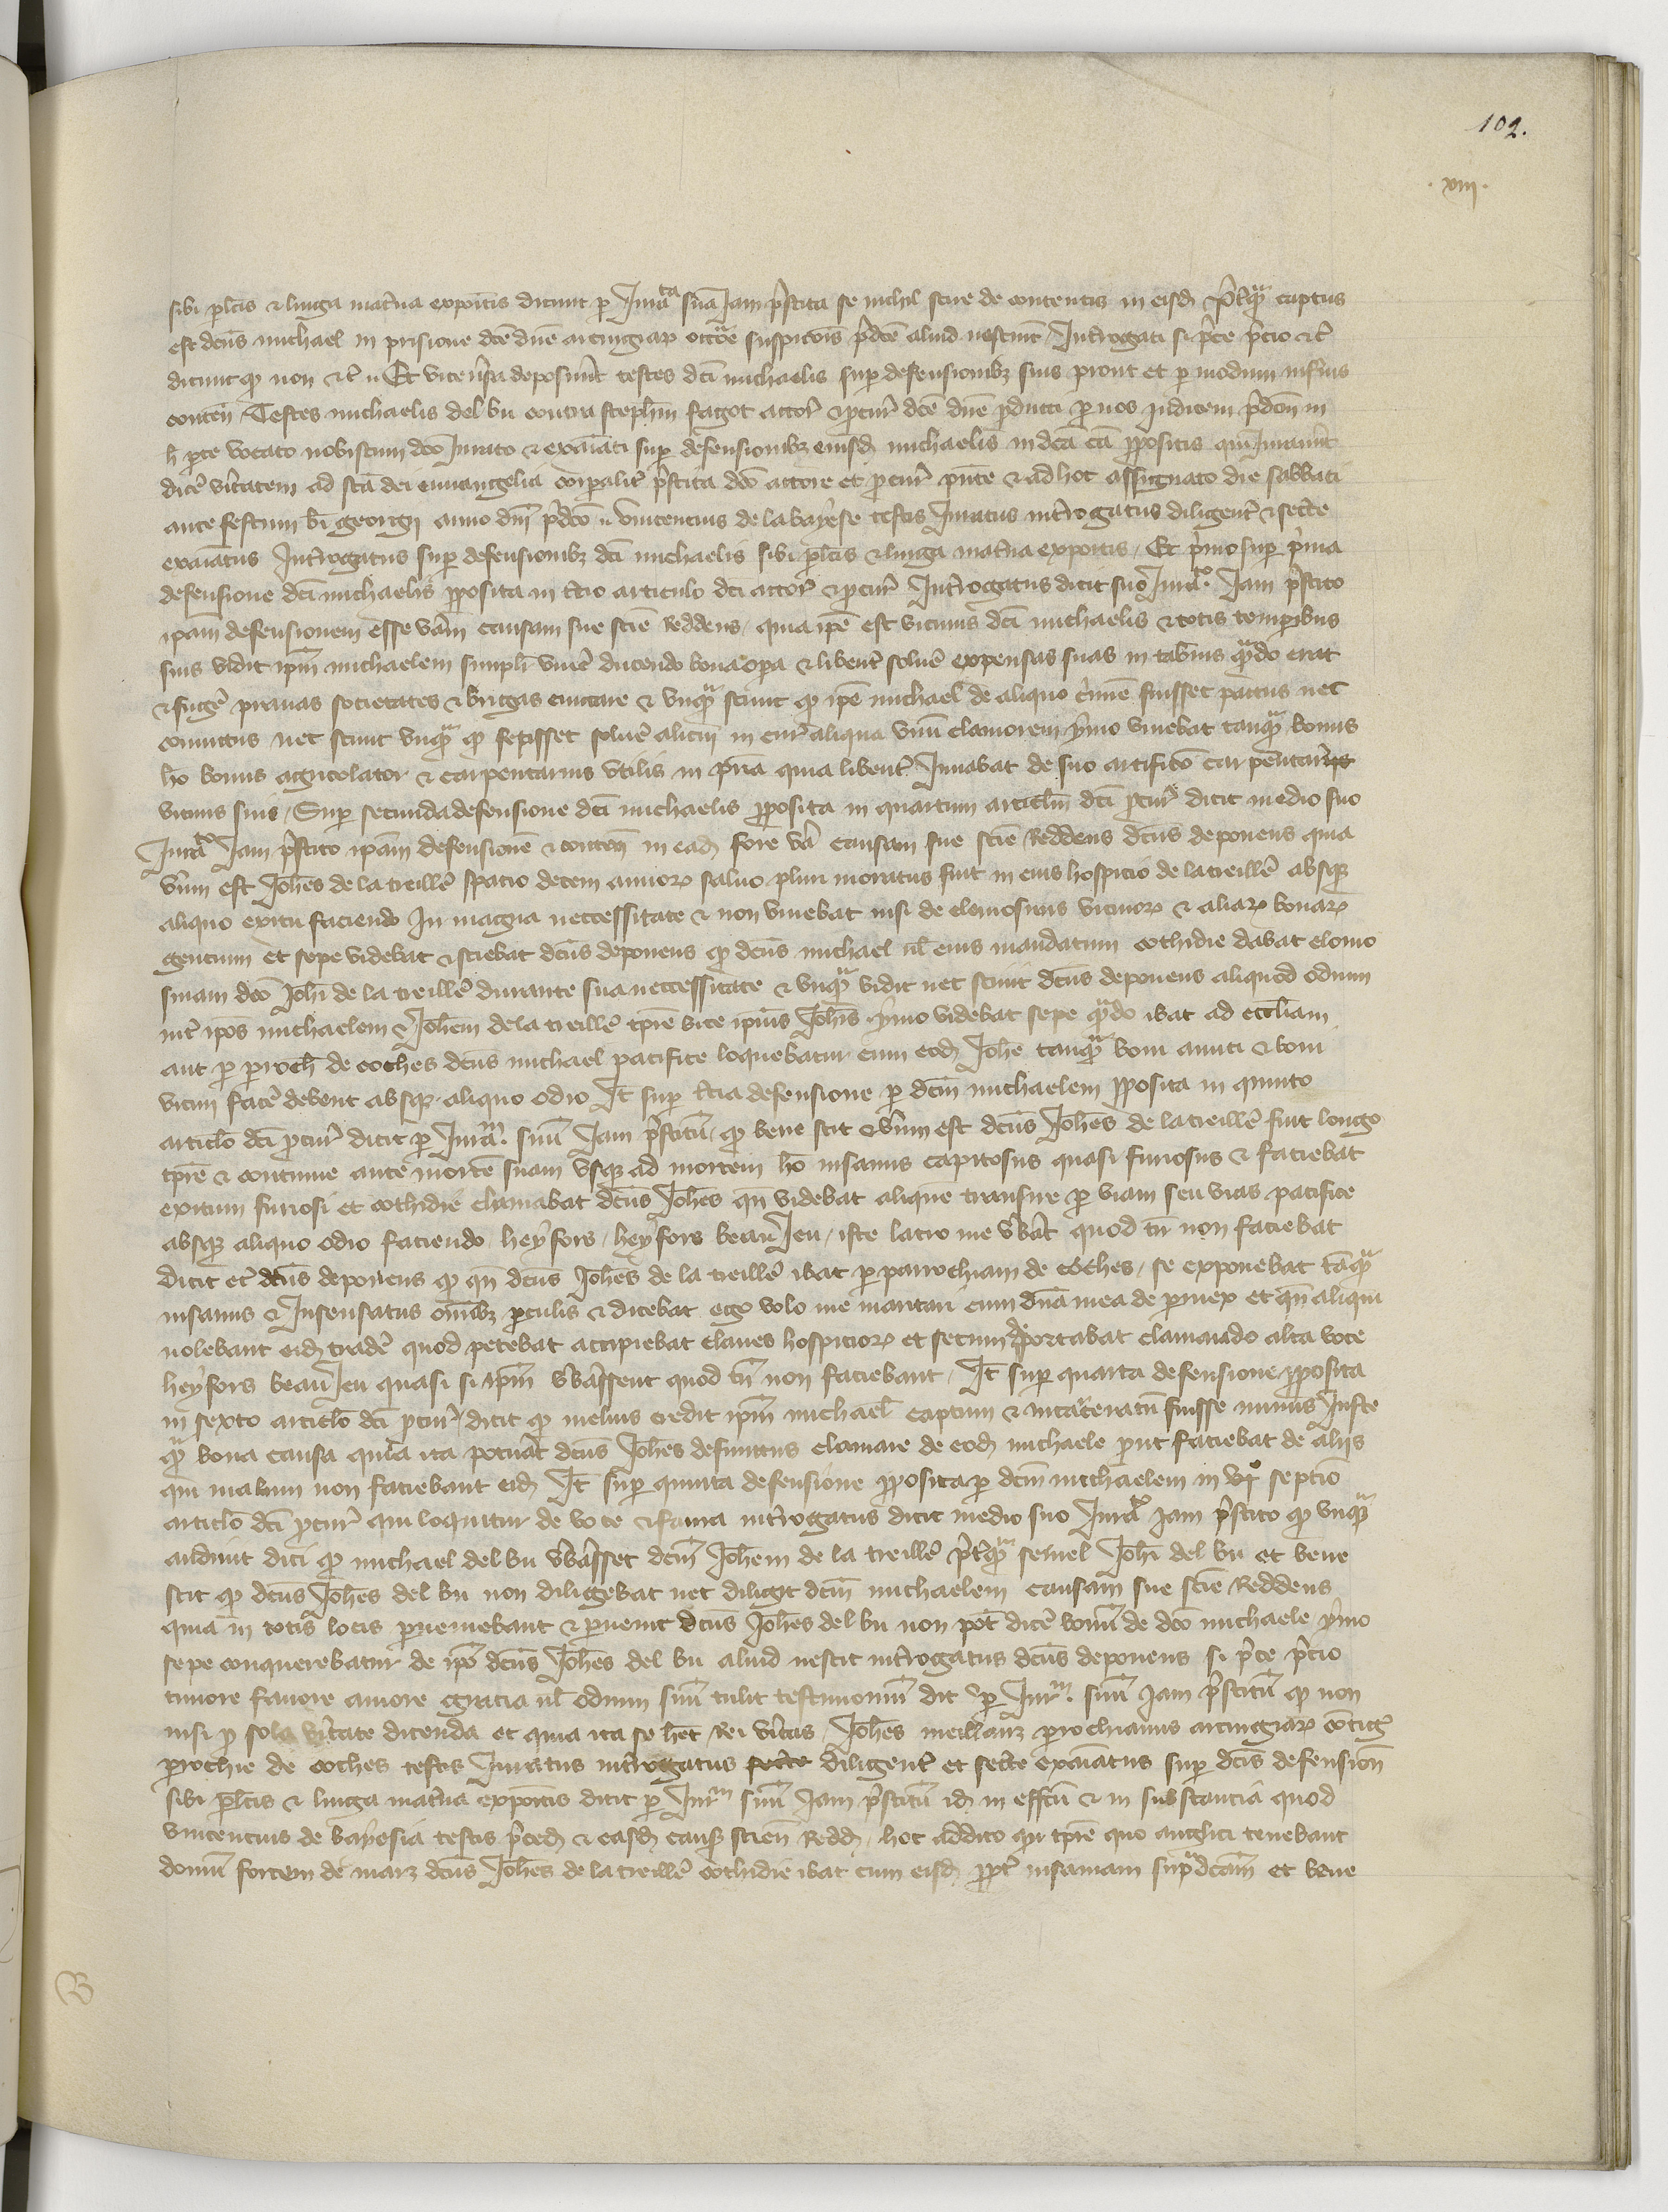 102.
. xiij .
sibi p̱lcis & linga mat̾na expoitis dicunt p̱ Jura^ta sua Jam p̾stita se nichil scire de contentis in eisd̾ p̾t̾q^a captus
est dcus michael in prisione dce dne arcingiaꝝ occ̃oe suspic̃ois p̾dce aliud nesciut Int̾rogati si p̾ce p̾cio &c̃
dicunt ꝙ non &c̃ .. Et vice v̾sa deposuer̃t testes dci michaelis sup̱ defensionibꝫ suis prout et p̱ modum inf̾ius
conten̄ / Testes michaelis del bu contra steph̄m fagot actor̃ & p̱cur̃ dce dne p̱ducti p̱ nos judicem p̾dcm in
h̄ p̱te vocato nobiscum dco Jurato & exaiati sup̱ defensionibꝫ eiusd̾ michaelis in dca ca p̱positis qui Jurauer̃t
dic̾e v̾itatem ad sca dei euuangelia corp̱alit̾ p̾stita dco actore et p̱cur̃ pn̄te & ad hoc assignato die sabbati
ante festum bi georgij anno dni p̾dco .. vincencius de la bayese testis Juratus int̾rogatus diligent̾ & sec̾te
exaiatus Int̾rogatus sup̱ defensionibꝫ dci michaelis sibi p̱lcis & linga mat̾na expoitis / Et p̾mo sup̱ p̾ma
defensione dci michaelis p̱posita in t̾cio articulo dci actor̃ & p̱cur̃ Int̾rogatus dicit suo Jura^to Jam p̾stito
ipam defensionem esse v̾am causam sue scie Reddens / quia ip̄e est vicinus dci michaelis & totis temporibus
suis vidit ipm̄ michaelem simpl̄r viu̾e ducendo bona op̱a & libent̾ solu̾e expensas suas in tab̾nis q^ado erat
& fug̾e prauas societates & brigas euitare & vnq^a sciuit ꝙ ip̄e michael de aliquo c̾mine fuisset pactus nec
conuictus nec sciuit vnq^a ꝙ fepisset solu̾e alicui in cur̃ aliqua vnū clamorem ymo viuebat tanq^a bonus
h̄o bonus agricolator & carpentarius vtilis in p̱ria quia libent̾ Juuabat de suo artificio carpentar̃
vicinis suis / Sup̱ secunda defensione dci michaelis p̱posita in quartum articl̄m dci p̱cur̃ dicit medio suo
Jura^to Jam p̾stito ipam defensionē & conten̄ in ead̾ fore v̾a causam sue scie Reddens dcus deponens quia
v̾um est Joh̄es de la treille spacio decem annoꝝ saluo pluri moratus fuit in eius hospicio de la treille absqꝫ
aliquo exitu faciendo In magna neccessitate & non viuebat nisi de elemosinis vicinoꝝ & aliaꝝ bonaꝝ
gencium et sepe videbat & sciebat dcus deponens ꝙ dcus michael ul̄ eius mandatum cothidie dabat elemo
sinam dco Joh̄i de la treille durante sua neccessitate & vnq^a vidit nec sciuit dcus deponens aliquod odium
int̾ ipos michaelem & Joh̄em de la treille tp̄re vite ipius Joh̄is ymo videbat sepe q^ado ibat ad eccl̄iam
aut p̱ p̱roch̄ de coches dcus michael pacifice loquebatur cum eod̾ Joh̄e tanq^a boni amici & boni
vicini fac̾e debent absqꝫ aliquo odio It̄ sup̱ t̾cia defensione p̱ dcm michaelem p̱posita in quinto
articl̄o dci p̱cur̃ dicit p̱ Jura^m suū Jam p̾stitū / ꝙ bene scit & v̾um est dcus Joh̄es de la treille fuit longo
tp̄re & continue ante mortē suam vsqꝫ ad mortem h̄o insanus capitosus quasi furiosus & faciebat
exitum furiosi et cothidie clamabat dcus Joh̄es qn̄ videbat aliquē transire p̱ viam seu vias pacifice
absqꝫ aliquo odio faciendo hey fors / hey fors beau Jeu / iste latro me v̾b̾at quod tn̄ non faciebat
Dicit et̃ dcus deponens ꝙ qn̄ dcus Joh̄es de la treille ibat p̱ parrochiam de coches / se exponebat taq^a
insanus & Insensatus oīnibꝫ p̱iculis & dicebat ego volo me maritari cum dna mea de p̱mex et qn̄ aliqui
nolebant eid̾ trad̾e quod petebat accipiebat claues hospicioꝝ et secum deportabat clamando alta voce
hey fors beau Jeu quasi si ipm̄ v̾b̾assent quod tn̄ non faciebant / It̄ sup̱ quarta defensione p̱posita
in sexto articl̄o dci p̱cur̃ / dicit ꝙ melius credit ipm̄ michael̄ captum & incarceratū fuisse minus Juste
q^a bona causa quia ita potuit dcus Joh̄es defunctus clamare de eod̾ michaele p̱ut faciebat de alijs
qui malum non faciebant eid̾ It̄ sup̱ quinta defensione p̱posita p̱ dcm michaelem in septīo
articl̄o dci p̱cur̃ qui loquitur de voce & fama int̾rogatus dicit medio suo Jura^to Jam p̾stito ꝙ vnq^a
audiuit dici ꝙ michael del bu v̾b̾asset dcm Joh̄em de la treille p̾t̾q^a semel Joh̄i del bu et bene
scit ꝙ dcus Joh̄es del bu non diligebat nec diligit dcm michaelem causam sue scie Reddens
quia in totis locis p̱ueniebant & p̱uenit dcus Joh̄es del bu non pōt dic̾e bonū de dco michaele ymo
sepe conquerebatur de ipo dcus Joh̄es del bu aliud nescit int̾rogatus dcus deponens si p̾ce p̾cio
timore fauore amore gracia ul̄ odium suū tulit testimoniū dīt p̱ Jur^m suū Jam p̾stitū ꝙ non
nisi p̱ sola v̾itate dicenda et quia ita se h̄et Rei v̾itas / Joh̄es meillanz p̱rochianus arcingiaꝝ cōtig̾
p̱rochie de coches testis Juratus int̾rogatus diligent̾ et sec̾te exaiatus sup̱ dcis defension̄
sibi p̱lcis & linga mat̾na expoitis dicit p̱ Jur^m suū Jam p̾stitū id̾ in effc̄u & in substancia quod
vincencius de bayesia testis p̾ced̾ & easd̾ caus̾ scien̄ Redd̾ / hoc addito qr̄ tp̄re quo anglici tenebant
domū fortem de marz dcus Joh̄es de la treille cothidie ibat cum eisd̾ p̱pt̾ insaniam sup^adcam et bene
B